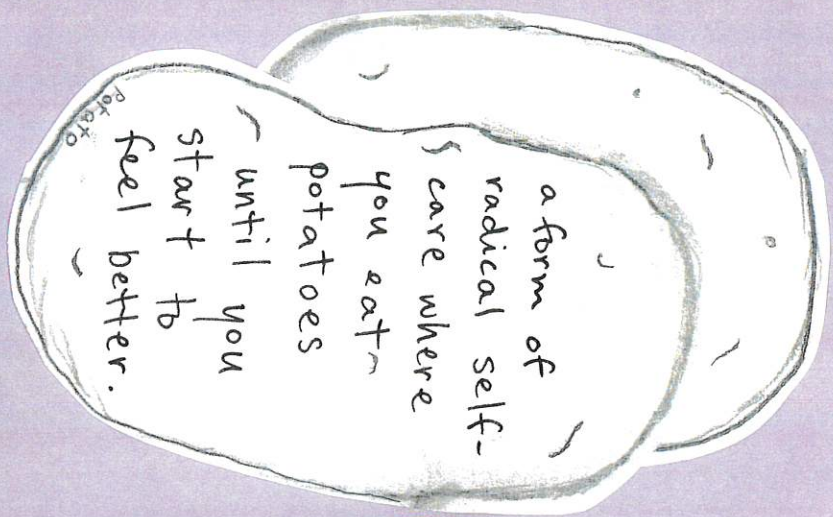 a form of
radical self-
care where
you eat
potatoes
until you
start to
feel better.
Potato